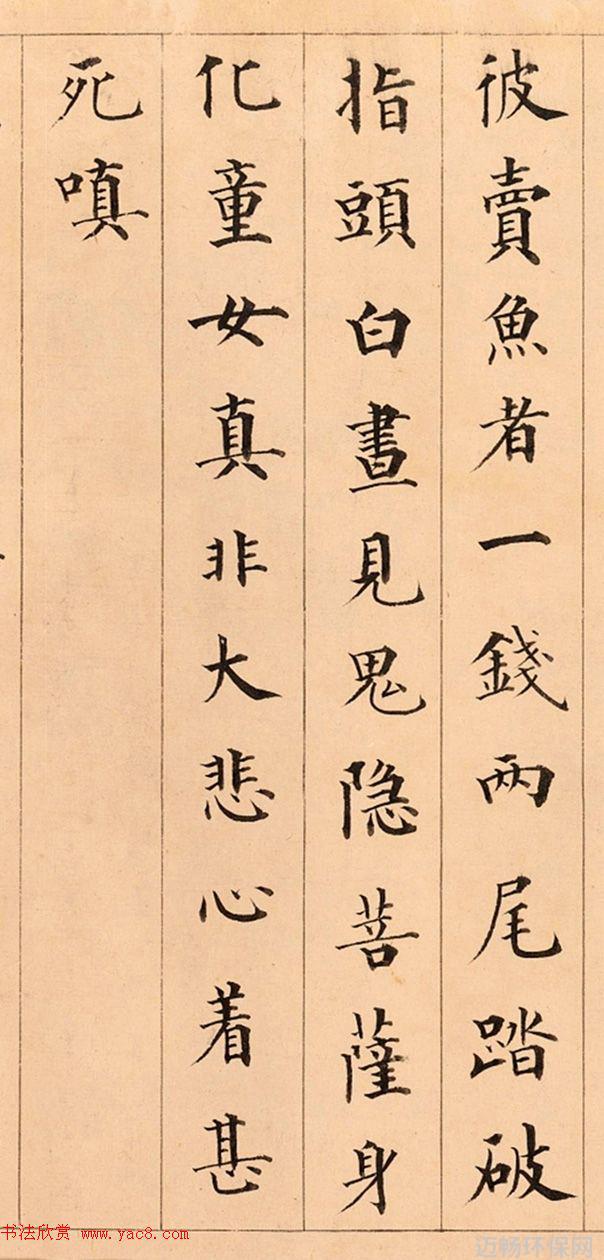 彼賣魚者一錢两尾踏破
指頭白晝見鬼隐菩薩身
化童女真非大悲心着甚
死嗔
书法欣赏 www.yac8.com
迈畅环保网